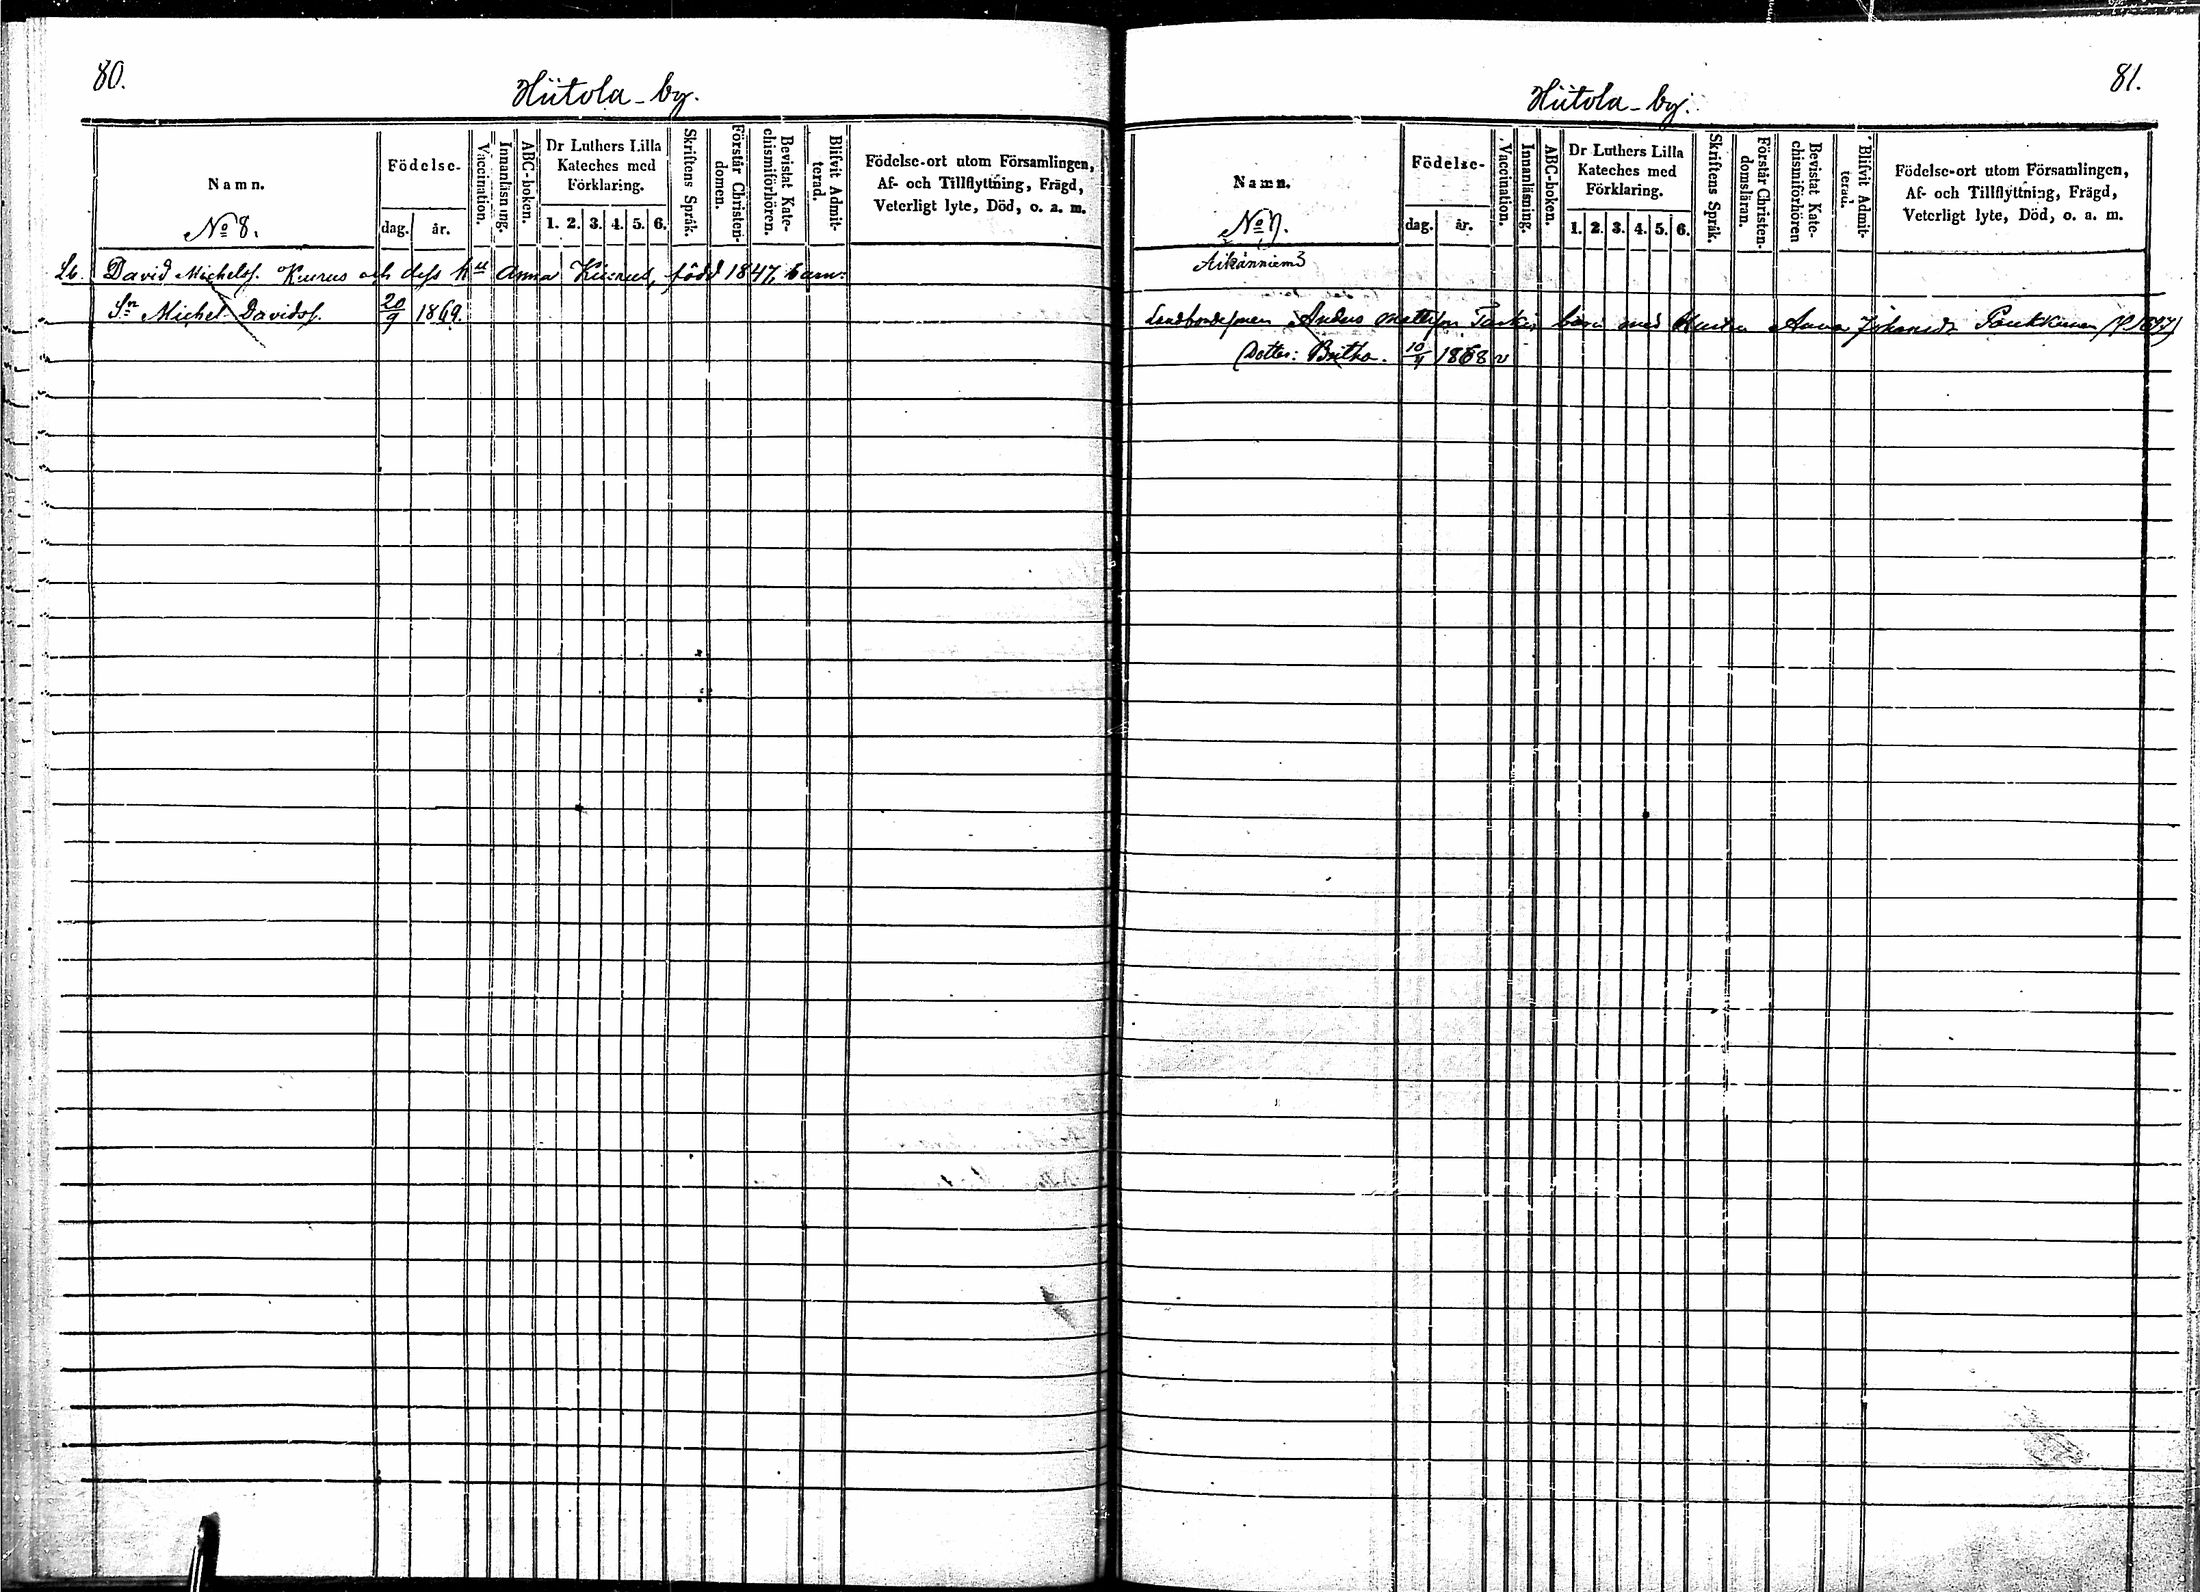 80.
Hiitola by.
Namn.
No 8.
Födelse-
dag. år.
Vaccination.
Innanläsning.
ABC-boken.
Dr Luthers Lilla
Kateches med
Förklaring.
1. 2. 3. 4. 5. 6.
Skriftens Språk.
Förstår Christen-
domen.
Bevistat Kate-
chismiförhören.
Blifvit Admit-
terad.
Födelse-ort utom Församlingen,
Af- och Tillflyttning, Frägd,
Veterligt lyte, Död, o. a. m.
Lb. David Michelss. Kuurus och dess hu Anna, född 1847, barn:
Sn Michel Davidss. 20/9 1869.
81.
Hiitola by.
Namn.
No
Födelse-
dag. år.
Vaccination.
Innanläsning.
ABC-boken.
Dr Luthers Lilla
Kateches med
Förklaring.
1. 2. 3. 4. 5. 6.
Skriftens Språk.
Förstår Christen-
domsläran.
Bevistat Kate-
chismiförhören
Blifvit Admit-
terad.
Födelse-ort utom Församlingen,
Af- och Tillflyttning, Frägd,
Veterligt lyte, Död, o. a. m.
Landbondesonen Anders Mattsson barn med Hustru Anna Johansdr Paukkunen
Dotter: Britha. 1868 v